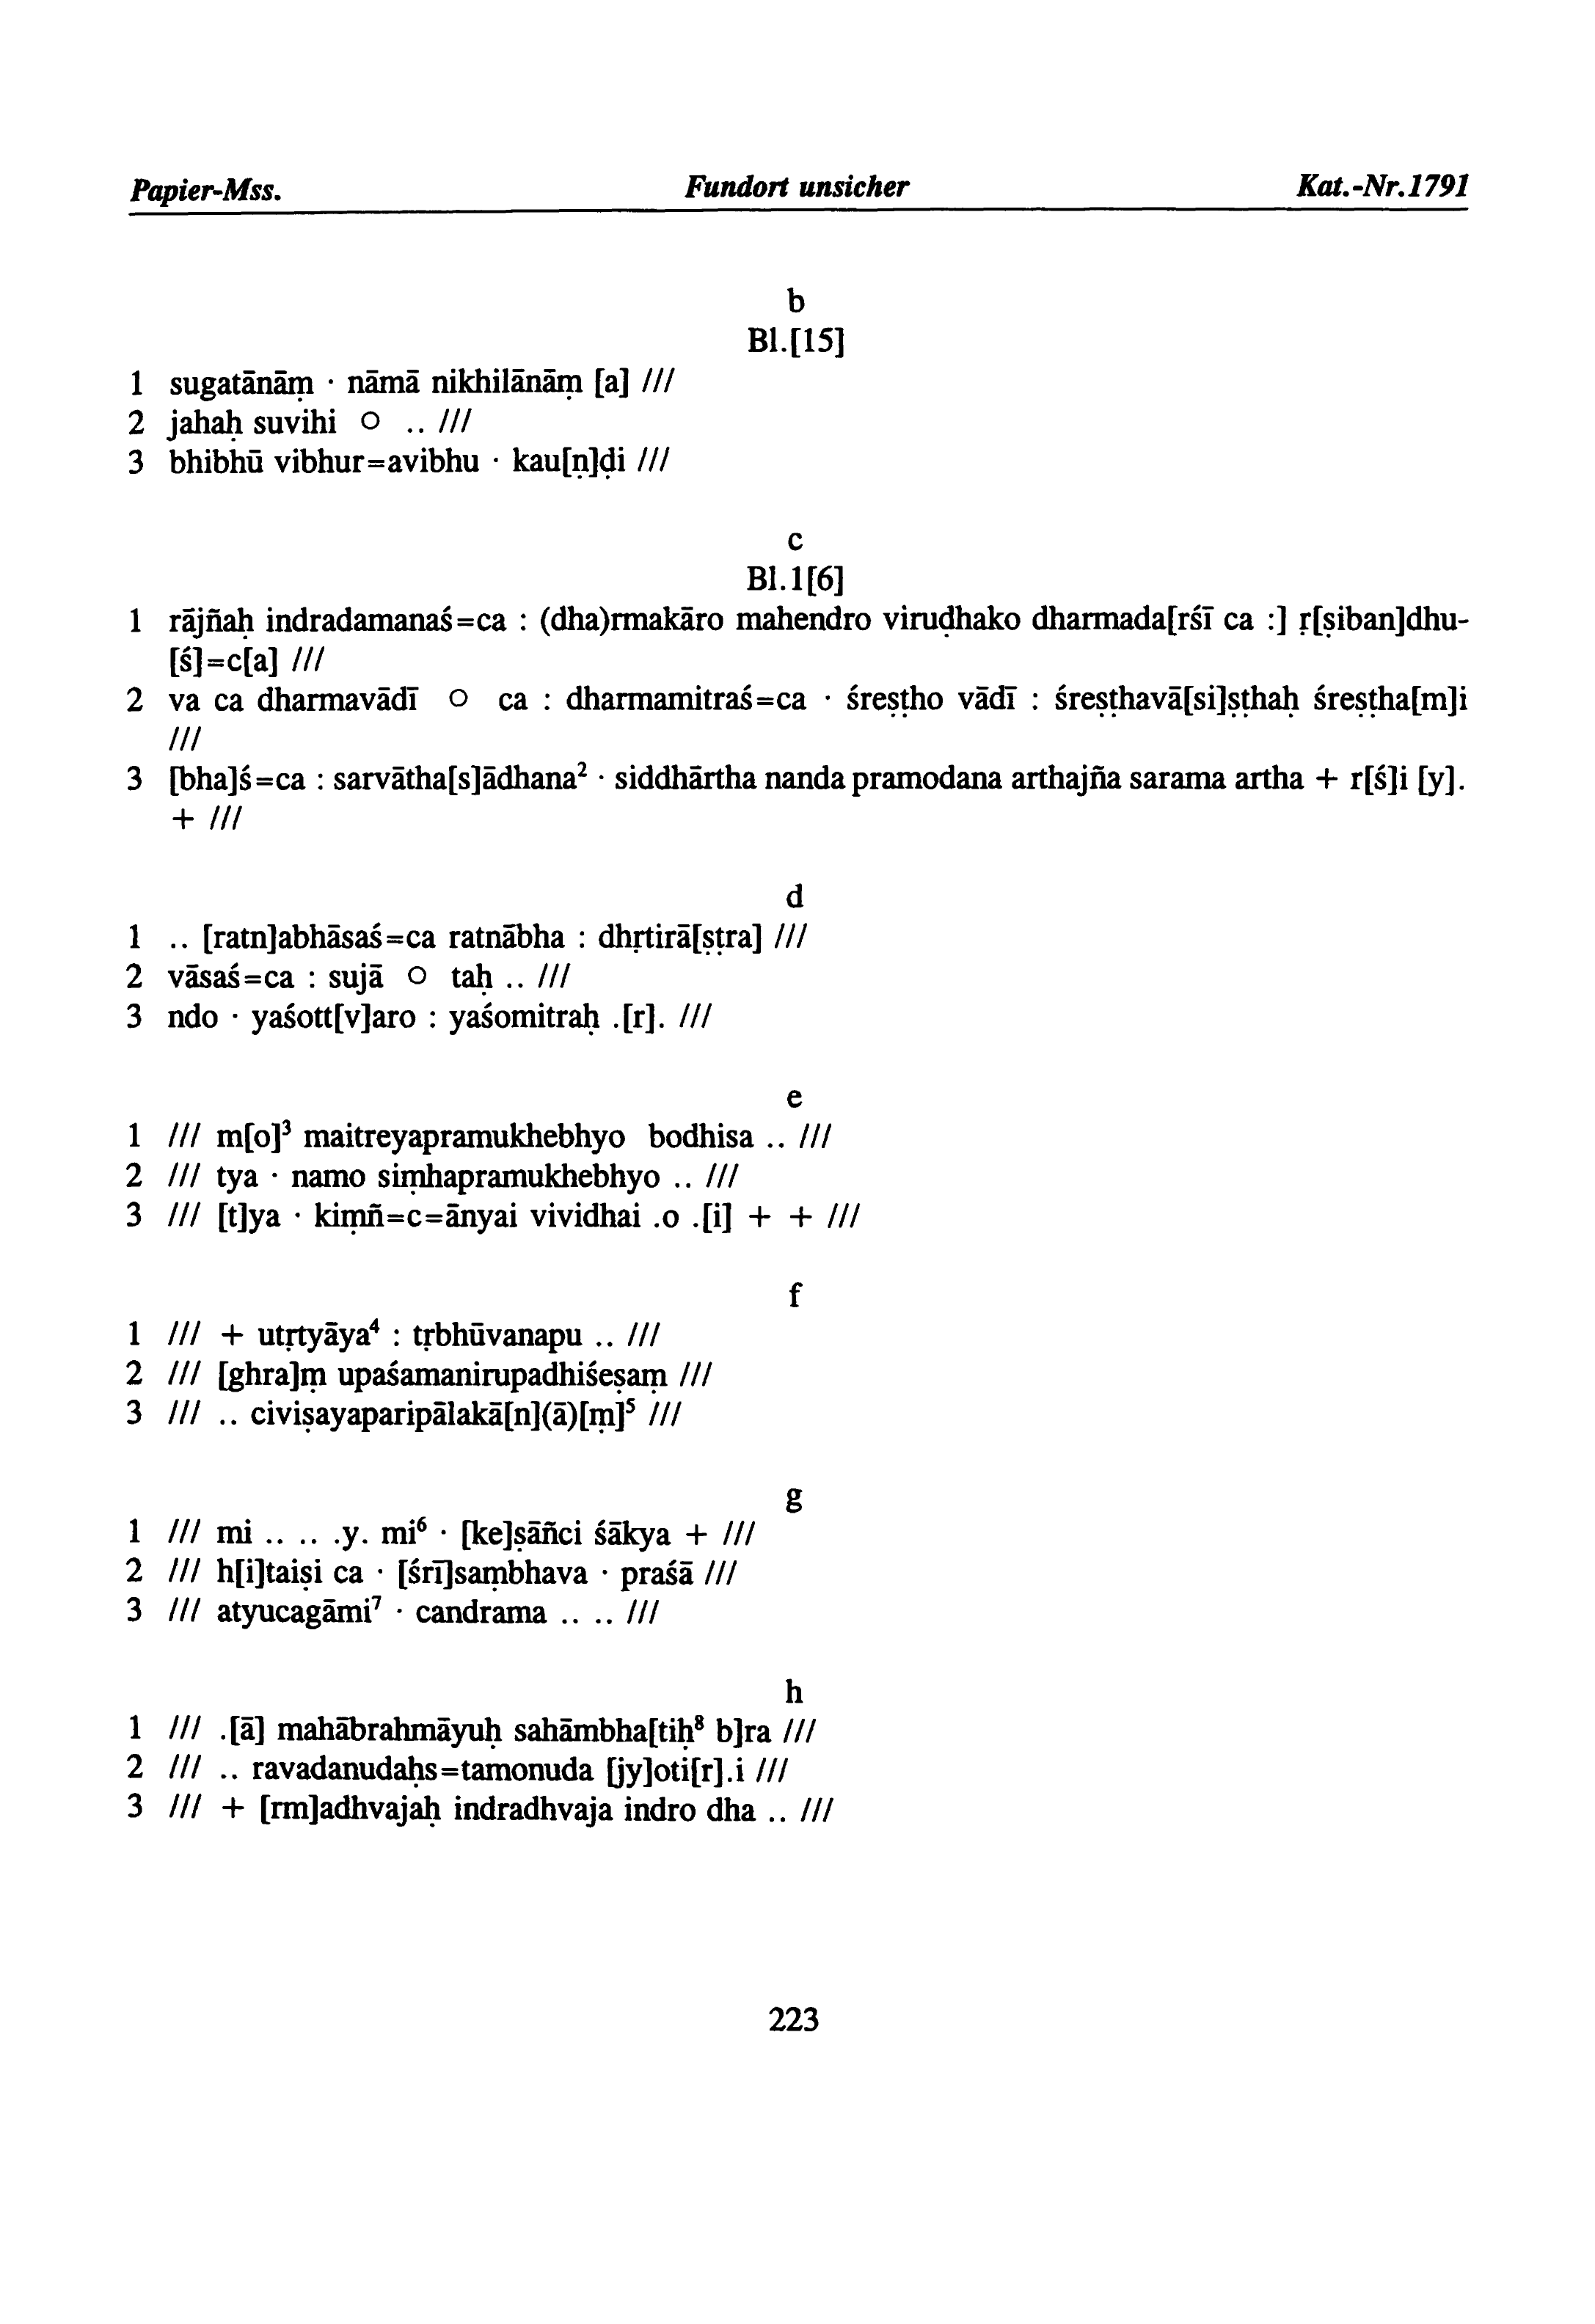 Papier-Mss. Fundort unsicher Kat.-Nr.1791
b
Bl.[15]
1 sugatānāṃ · nāmā nikhilānāṃ [a] ///
2 jahaḥ suvihi ○ .. ///
3 bhibhū vibhur=avibhu · kau[ṇ]ḍi ///
c
Bl.1[6]
1 rājñaḥ indradamanaś=ca : (dha)rmakāro mahendro viruḍhako dharmada[rśī ca :] ṛ[ṣiban]dhu-
[ś]=c[a] ///
2 va ca dharmavādī ○ ca : dharmamitraś=ca · śreṣṭho vādī : śreṣṭhavā[si]ṣṭhaḥ śreṣṭha[m]i
///
3 [bha]ś=ca : sarvātha[s]ādhana² · siddhārtha nanda pramodana arthajña sarama artha + r[ś]i [y].
+ ///
d
1 .. [ratn]abhāsaś=ca ratnābha : dhṛtirā[ṣṭra] ///
2 vāsaś=ca : sujā ○ taḥ .. ///
3 ndo · yaśott[v]aro : yaśomitraḥ .[r]. ///
e
1 /// m[o]³ maitreyapramukhebhyo bodhisa .. ///
2 /// tya · namo siṃhapramukhebhyo .. ///
3 /// [t]ya · kiṃñ=c=ānyai vividhai .o .[i] + + ///
f
1 /// + utṛtyāya⁴ : tṛbhūvanapu .. ///
2 /// [ghra]ṃ upaśamanirupadhiśeṣaṃ ///
3 /// .. civiṣayaparipālakā[n](ā)[ṃ]⁵ ///
g
1 /// mi .. .. .y. mi⁶ · [ke]ṣāñci śākya + ///
2 /// h[i]taiṣi ca · [śrī]saṃbhava · praśā ///
3 /// atyucagāmi⁷ · candrama .. .. ///
h
1 /// .[ā] mahābrahmāyuḥ sahāmbha[tiḥ⁸ b]ra ///
2 /// .. ravadanudaḥs=tamonuda [jy]oti[r].i ///
3 /// + [rm]adhvajaḥ indradhvaja indro dha .. ///
223